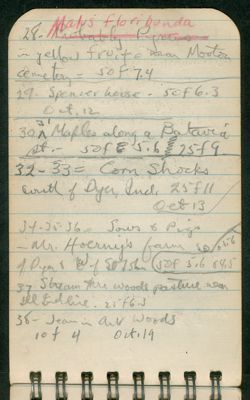 Malus floribunda
28.
in yellow fruit & down Morton
Cemetery - 50f 7.4
29. Spencer house. 50f 6.3
Oct. 12
30 & 31 Maples along a Batavia
st. - 50f 8 5.6 25f9
32-33= Corn Shocks
south of Dyer, Ind. 25f11
Oct 13
34-35-36- Sows & Pigs
- Mr. Hoerny's farm 50f5.6
of Dyer & 50f 5.6
37 Stream thru woods pasture near
Ill & Ind line. 25f6.3
38- Jean in Art Woods
10 f 4 Oct. 14